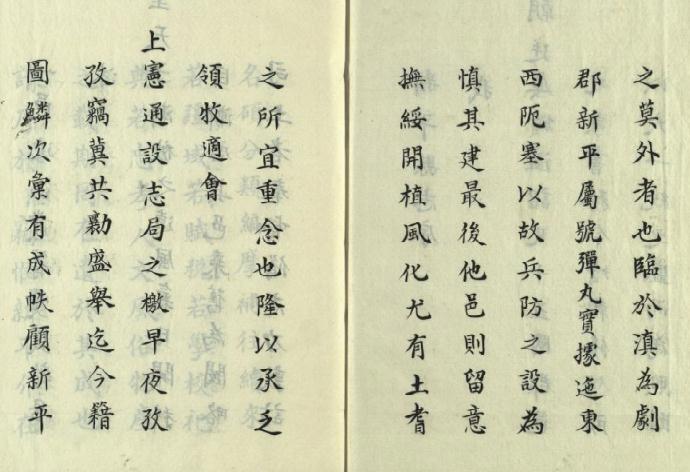 之莫外者也臨於滇為劇
郡新平屬號彈丸實據迤東
西阨塞以故兵防之設為
慎其建最後他邑則留意
撫綏開植風化尤有土者
之所宜重念也隆以承乏
領牧適會
上憲通設志局之檄早夜孜
孜竊冀共勷盛舉迄今籍
圖鱗次彙有成帙顧新平